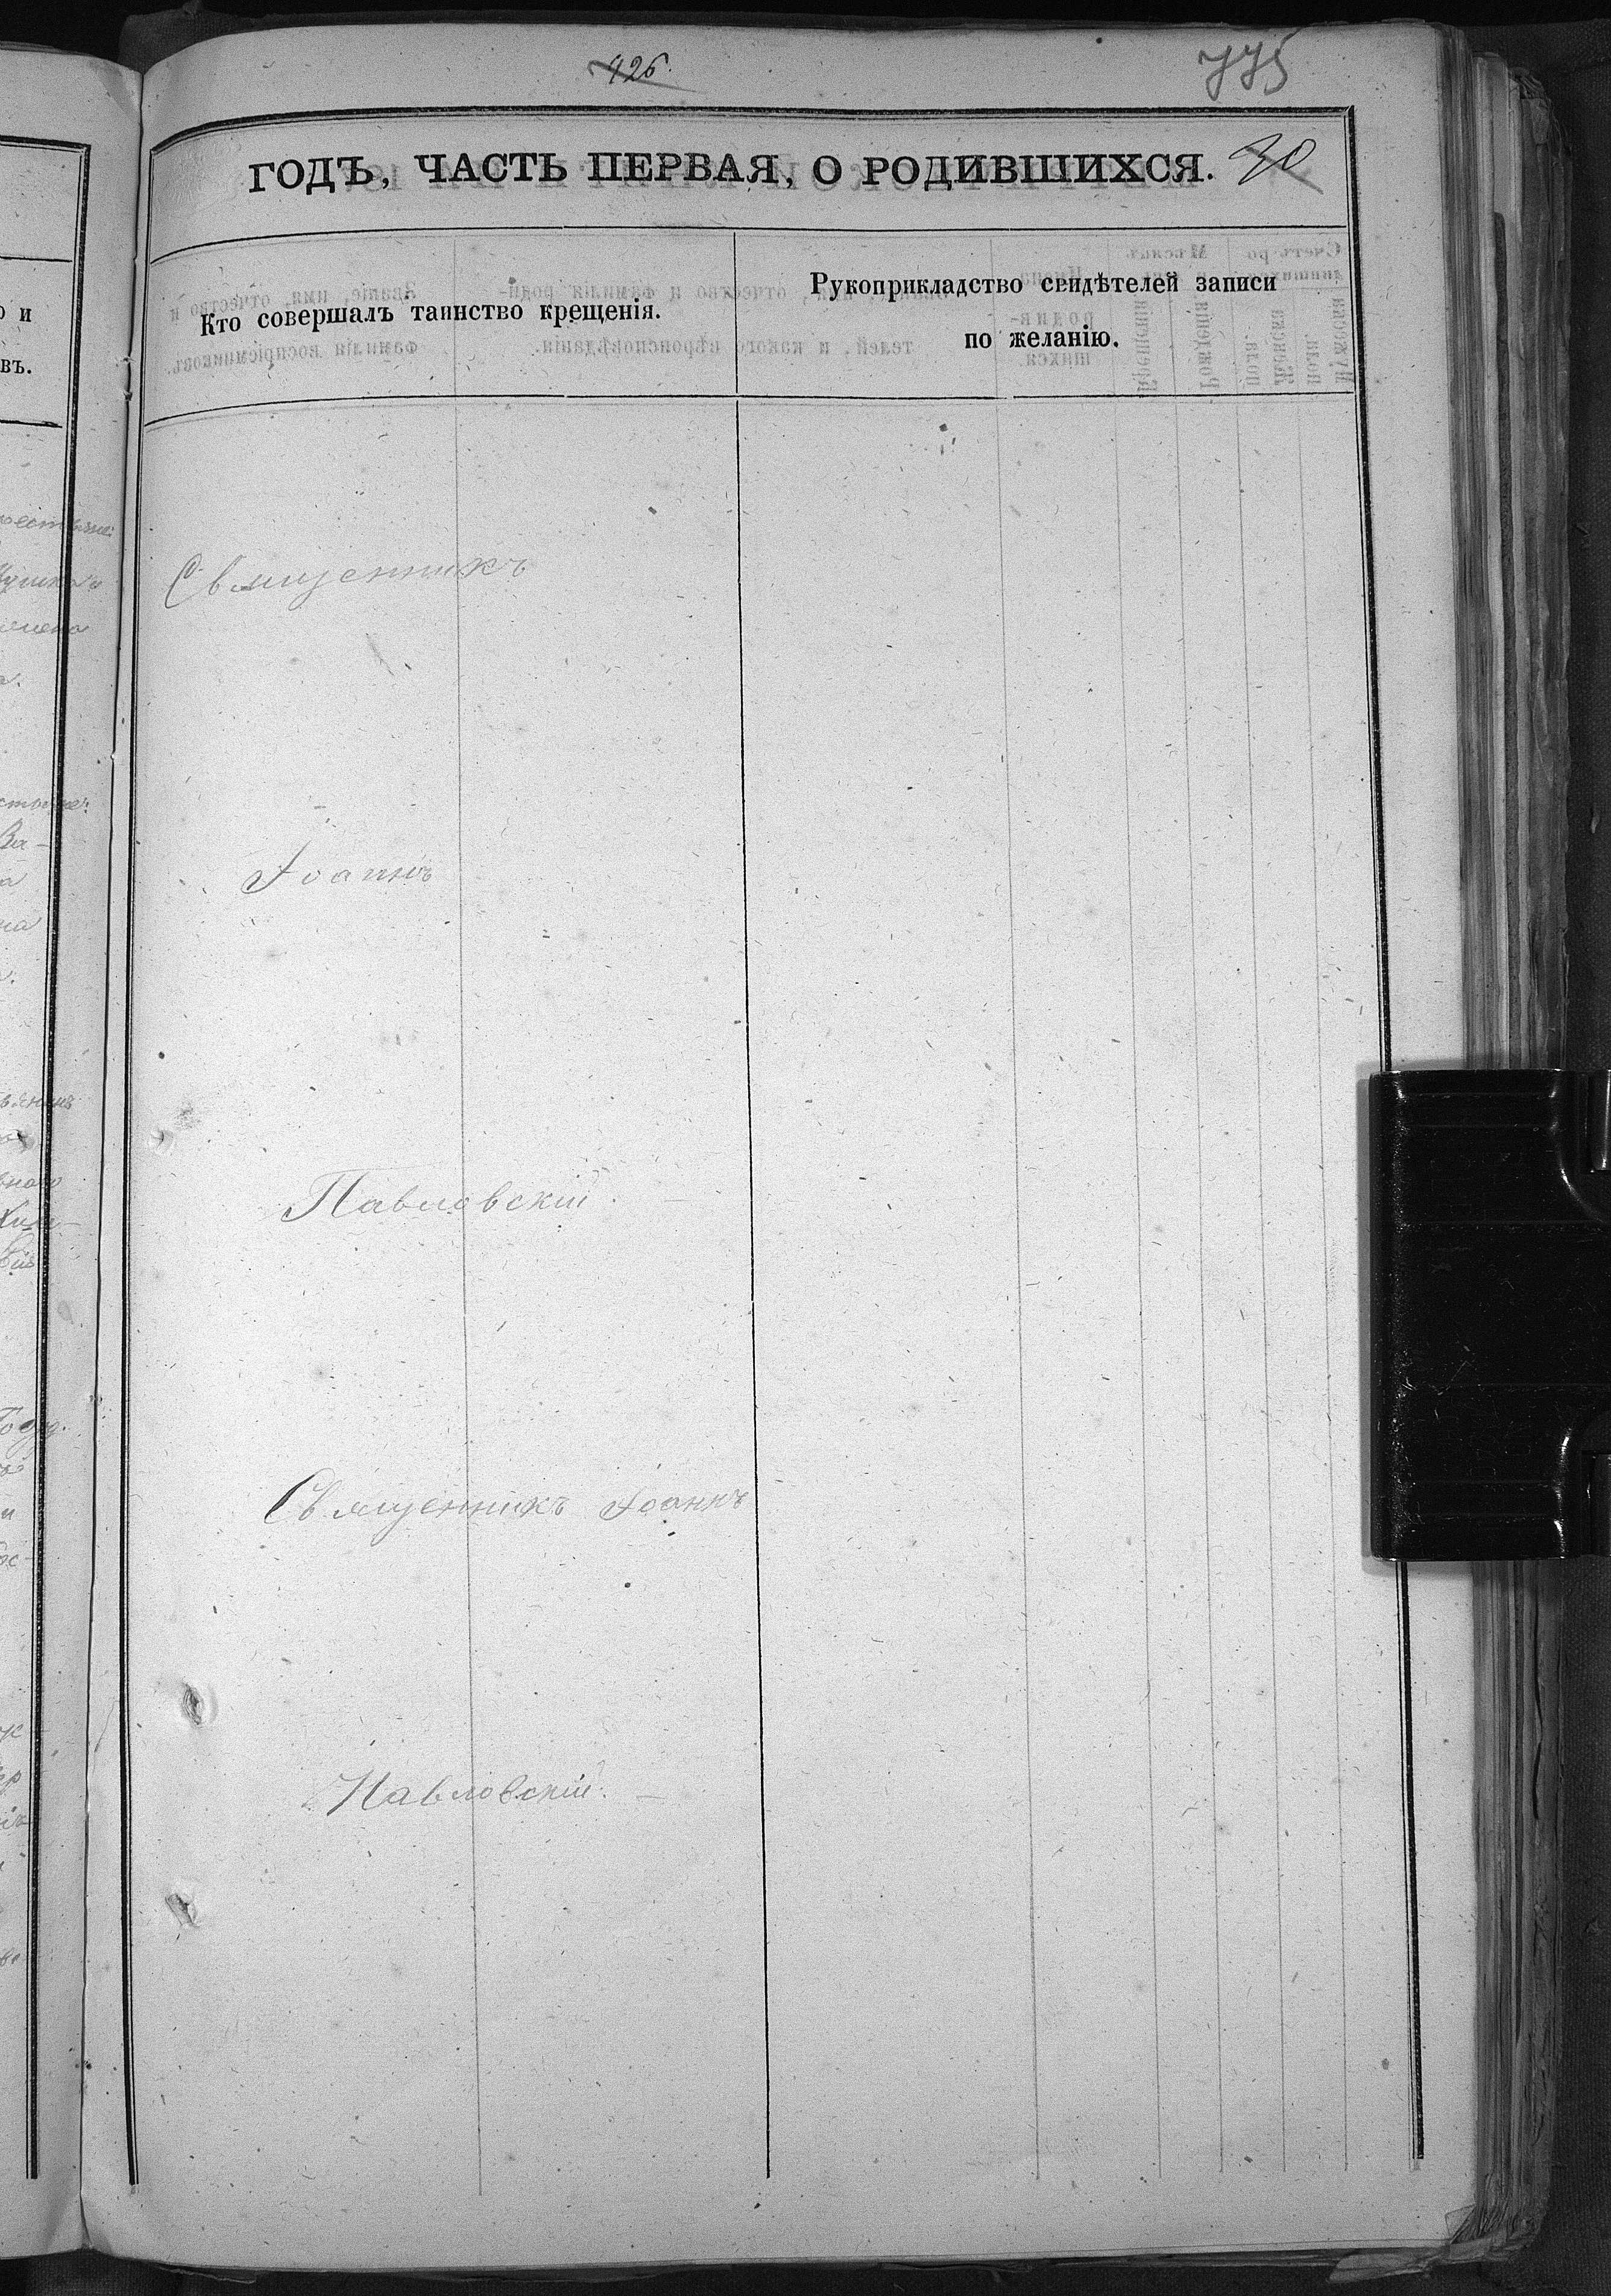 426.
775
ГОДЪ, ЧАСТЬ ПЕРВАЯ, О РОДИВШИХСЯ.
Кто совершалъ таинство крещенія.
Рукоприкладство свидѣтелей записи
по желанію.
Священникъ
Іоаннъ
Павловскій.
Священникъ Іоаннъ
Павловскій.